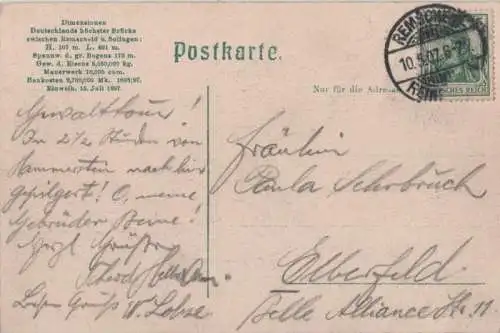 Dimensionen
Deutschlands höchster Brücke
zwischen Remscheid u. Solingen:
H. 107 m. L. 491 m.
Spannw. d. gr. Bogens 170 m.
Gew. d. Eisens 5,000,000 kg.
Mauerwerk 10,000 cbm.
Baukosten 2,700,000 Mk. 1893/97.
Einweih. 15. Juli 1897.
Postkarte.
REMSCHEID
10.5.07. 6-7
DEUTSCHES REICH
Nur für die Adresse
Gewalttour!
In 2 1/2 Stunden von
Hammerstein nach hier
gepilgert! O, meine
Gebrüder Beine!
Herzl Grüße
Theod
Gruß W. Lohse
Fräulein
Paula Sehrbruch
Elberfeld
Belle Alliance Str. 11